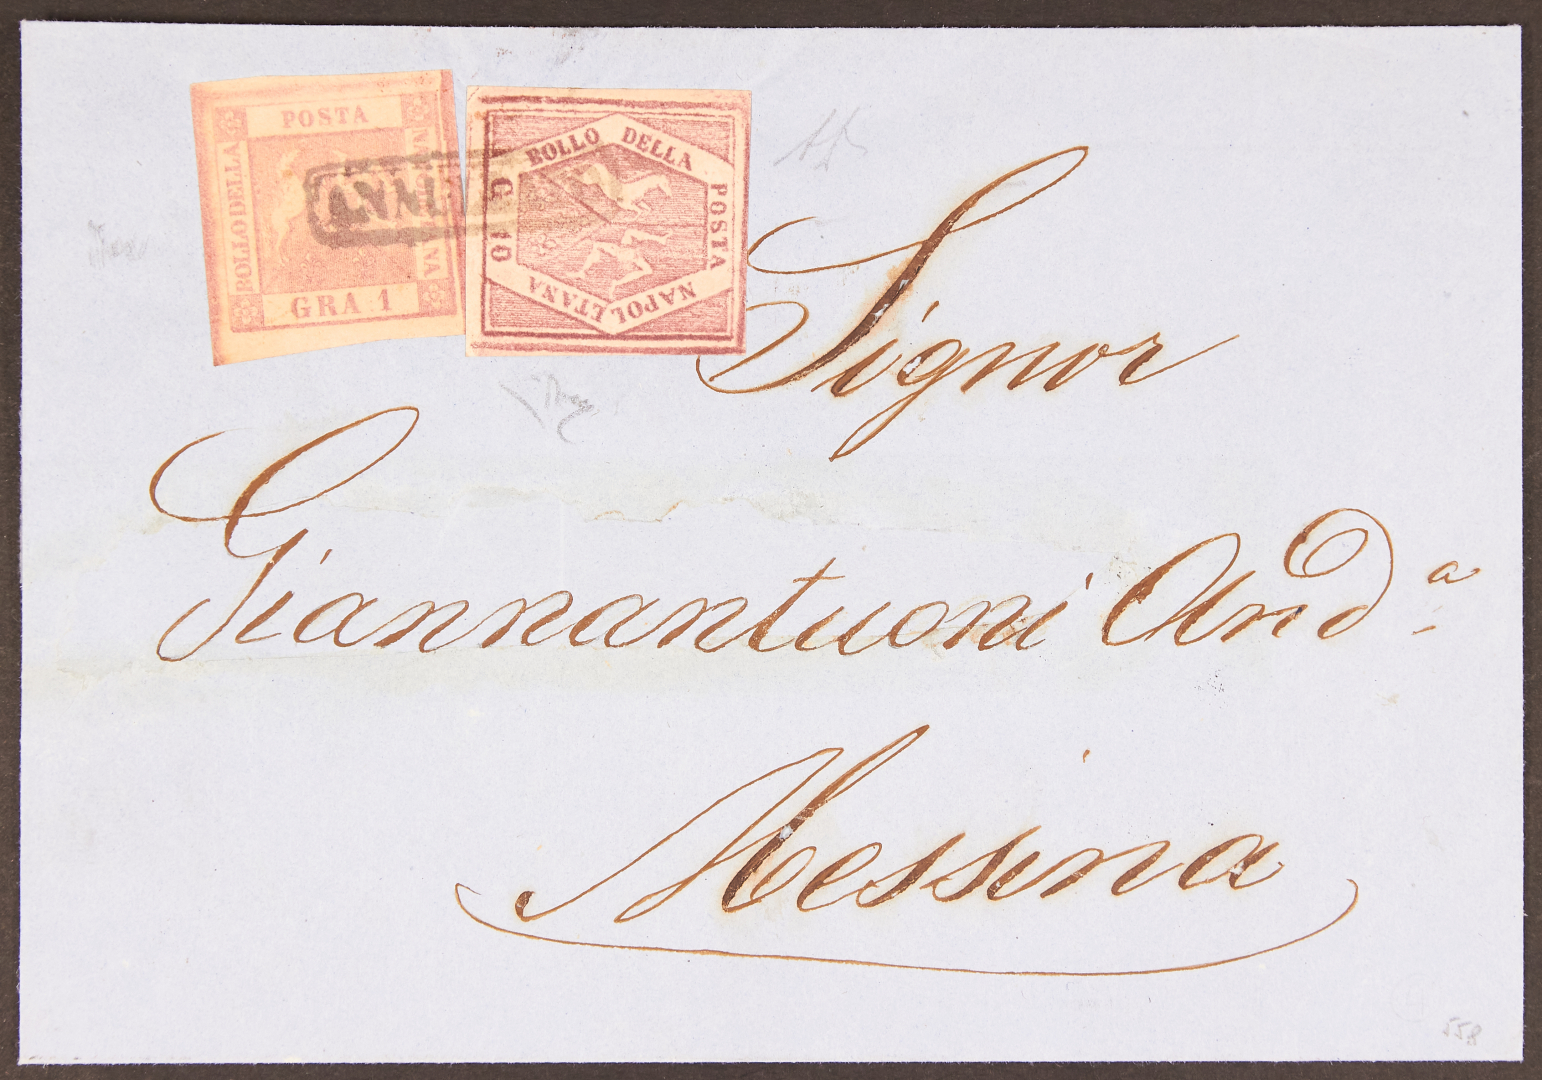 POSTA
BOLLO DELLA
NAPOLETANA
GRA 1
BOLLO DELLA POSTA NAPOLETANA
G. 10
ANNULLATO
Signor
Giannantuoni And.a
Messina
558